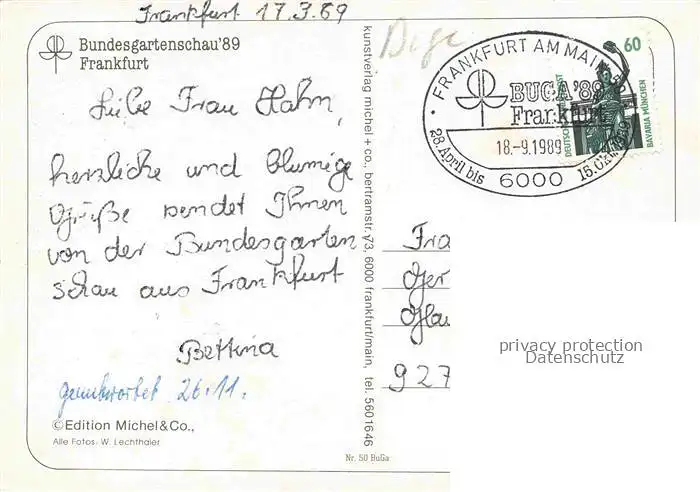 Frankfurt 17.3.89
Bundesgartenschau'89
Frankfurt
Liebe Frau Hahn,
herzliche und blumige
Grüße sendet Ihnen
von der Bundesgarten
schau aus Frankfurt
Bettina
geantwortet 26.11.
©Edition Michel&Co.,
Alle Fotos: W. Lechthaler
kunstverlag michel + co., bertramstr. 73, 6000 frankfurt/main, tel. 5601646
Nr. 50 BuGa
FRANKFURT AM MAIN
BUGA'89
Frankfurt
18.-9.1989
28. April bis
6000
15. Okt. 1989
60
DEUTSCHE BUNDESPOST
BAVARIA MÜNCHEN
Fra
Ger
927
privacy protection
Datenschutz